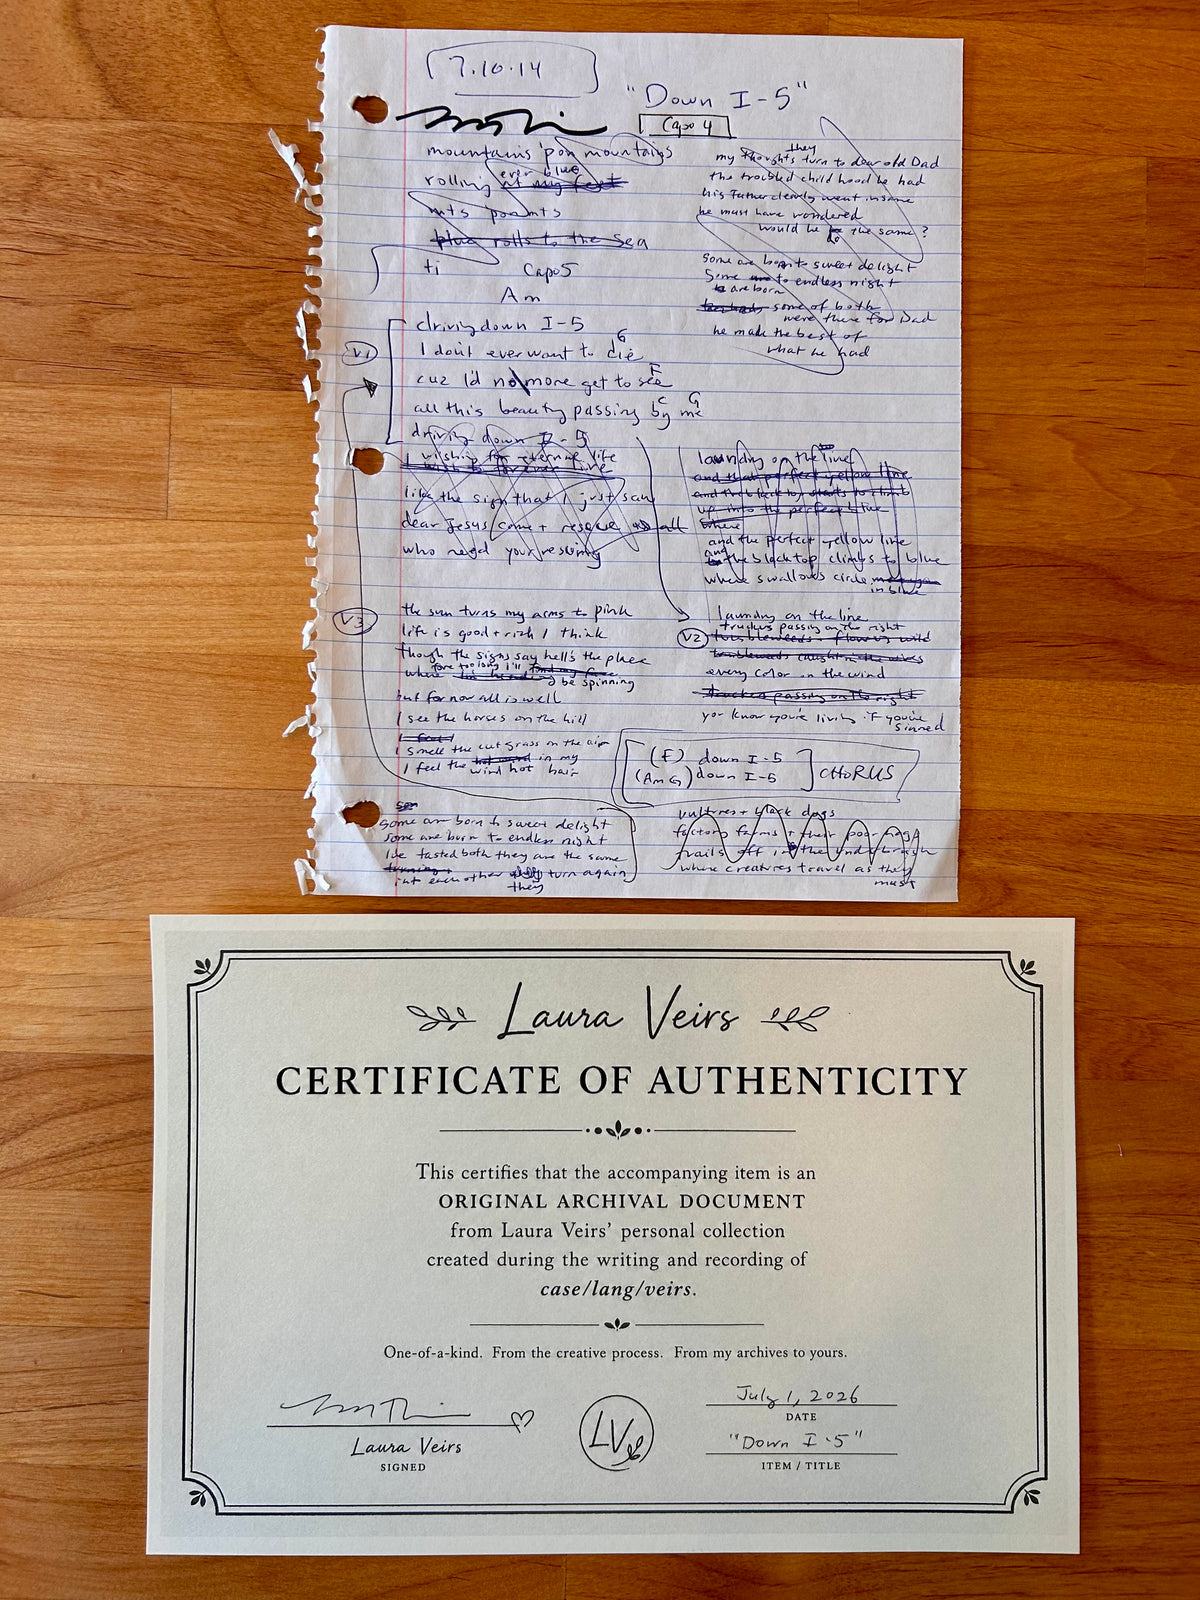 7.10.14
"Down I-5"
Capo 4
mountains 'pon mountains
ever blue
rolling at my feet
mts 'pon mts
blue rolls to the sea
ti
Capo 5
Am
driving down I-5
G
I don't ever want to die
V1
F
cuz I'd no more get to see
C G
all this beauty passing by me
driving down I-5
I wish for eternal life
like the sign that I just saw
dear Jesus come + rescue all
who need your rescuing
V3
the sun turns my arms to pink
life is good + rich I think
though the signs say hell's the place
where fore too long I'll find my face
be spinning
but for now all is well
I see the horses on the hill
I feel
I smell the cut grass on the air
I feel the hot wind in my
wind hot hair
some are born to sweet delight
some are born to endless night
I've tasted both they are the same
turning
into each other they turn again
they
my thoughts they turn to dear old Dad
the troubled childhood he had
his Father clearly went insane
he must have wondered
would he be the same?
do
some are born to sweet delight
some are to endless night
are born
some of both
were there for Dad
he made the best of
what he had
laundry on the line
and that perfect yellow line
and the blacktop starts to climb
up into the perfect blue
where
and the perfect yellow line
and the blacktop climbs to blue
where swallows circle
in blue
laundry on the line
truckers passing on the right
V2
tumbleweeds + flowers wild
tumbleweeds caught in the wires
every color in the wind
truckers passing on the right
you know you're living if you've
sinned
(F) down I-5
(Am G) down I-5
CHORUS
vultures + black dogs
factory farms + their poor hogs
trails off in the underbrush
where creatures travel as they
must
Laura Veirs
CERTIFICATE OF AUTHENTICITY
This certifies that the accompanying item is an
ORIGINAL ARCHIVAL DOCUMENT
from Laura Veirs' personal collection
created during the writing and recording of
case/lang/veirs.
One-of-a-kind. From the creative process. From my archives to yours.
Laura Veirs
SIGNED
LV
July 1, 2026
DATE
"Down I-5"
ITEM / TITLE